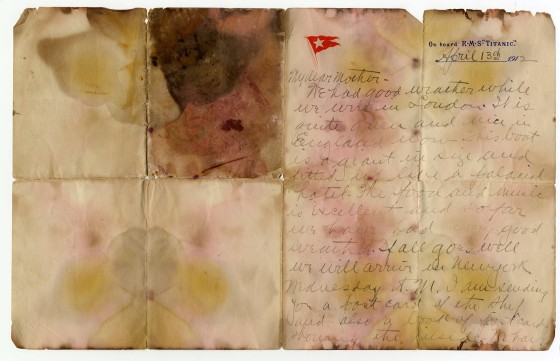 On board R.M.S. "TITANIC."
April 13th 1912
My dear Mother -
We had good weather while
we were in London. It is
quite green and nice in
England now. This boat
is a giant in size and
fitted up like a palacial
hotel. The food and music
is excellent and so far
we have had very good
weather. If all goes well
we will arrive in New York
Wednesday A.M. I am sending
you a post card of the ship
and also a book of post cards
showing the inside